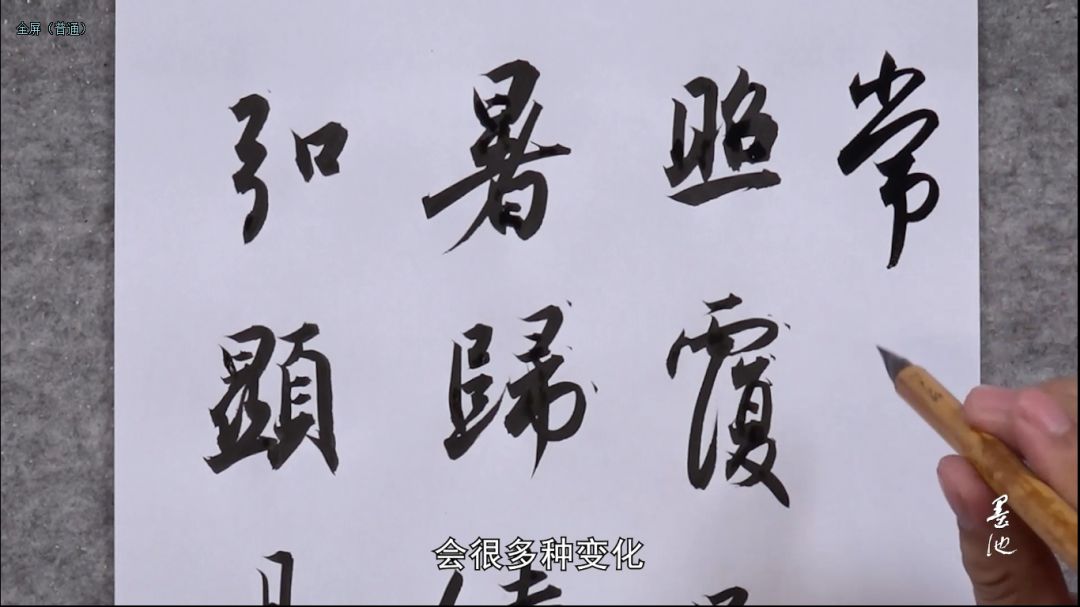 全屏（普通）
常
照覆
暑歸
弘顯
会很多种变化
墨池